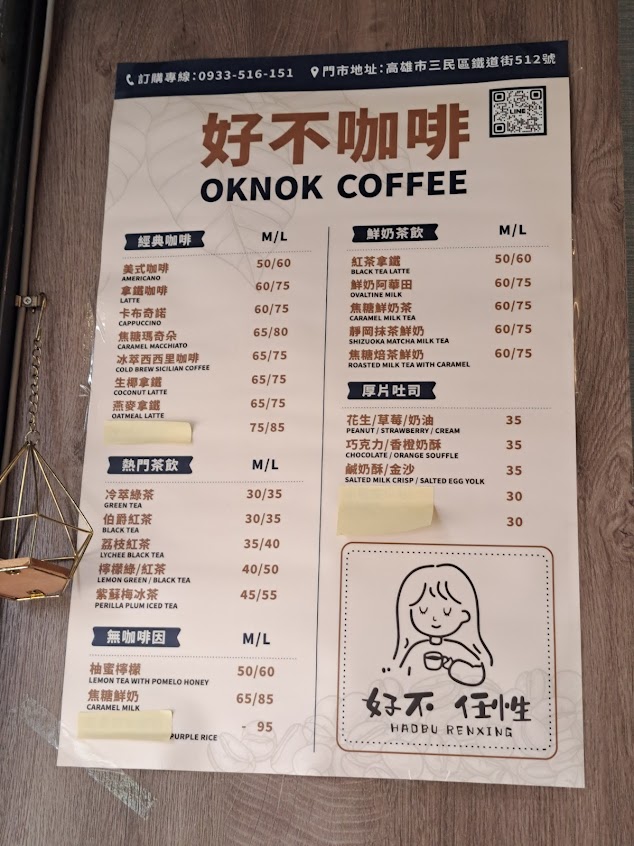 訂購專線:0933-516-151 門市地址:高雄市三民區鐵道街512號
好不咖啡
LINE
OKNOK COFFEE
經典咖啡 M/L
美式咖啡 50/60
AMERICANO
拿鐵咖啡 60/75
LATTE
卡布奇諾 60/75
CAPPUCCINO
焦糖瑪奇朵 65/80
CARAMEL MACCHIATO
冰萃西西里咖啡 65/75
COLD BREW SICILIAN COFFEE
生椰拿鐵 65/75
COCONUT LATTE
燕麥拿鐵 65/75
OATMEAL LATTE
75/85
熱門茶飲 M/L
冷萃綠茶 30/35
GREEN TEA
伯爵紅茶 30/35
BLACK TEA
荔枝紅茶 35/40
LYCHEE BLACK TEA
檸檬綠/紅茶 40/50
LEMON GREEN / BLACK TEA
紫蘇梅冰茶 45/55
PERILLA PLUM ICED TEA
無咖啡因 M/L
柚蜜檸檬 50/60
LEMON TEA WITH POMELO HONEY
焦糖鮮奶 65/85
CARAMEL MILK
- 95
PURPLE RICE
鮮奶茶飲 M/L
紅茶拿鐵 50/60
BLACK TEA LATTE
鮮奶阿華田 60/75
OVALTINE MILK
焦糖鮮奶茶 60/75
CARAMEL MILK TEA
靜岡抹茶鮮奶 60/75
SHIZUOKA MATCHA MILK TEA
焦糖焙茶鮮奶 60/75
ROASTED MILK TEA WITH CARAMEL
厚片吐司
花生/草莓/奶油 35
PEANUT / STRAWBERRY / CREAM
巧克力/香橙奶酥 35
CHOCOLATE / ORANGE SOUFFLE
鹹奶酥/金沙 35
SALTED MILK CRISP / SALTED EGG YOLK
30
30
好不 任性
HAOBU RENXING